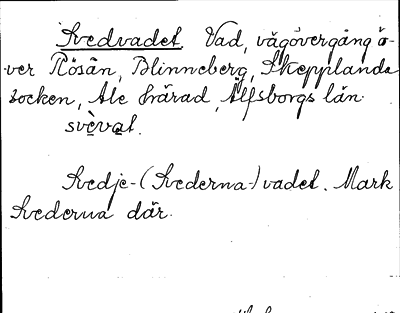 Svedvadet Vad, vägövergång ö-
ver Rösån, Blinneberg, Skepplanda
socken, Ale härad, Älfsborgs län.
svèvat.
Svedje-(Svederna-)vadet. Mark
Svederna där.